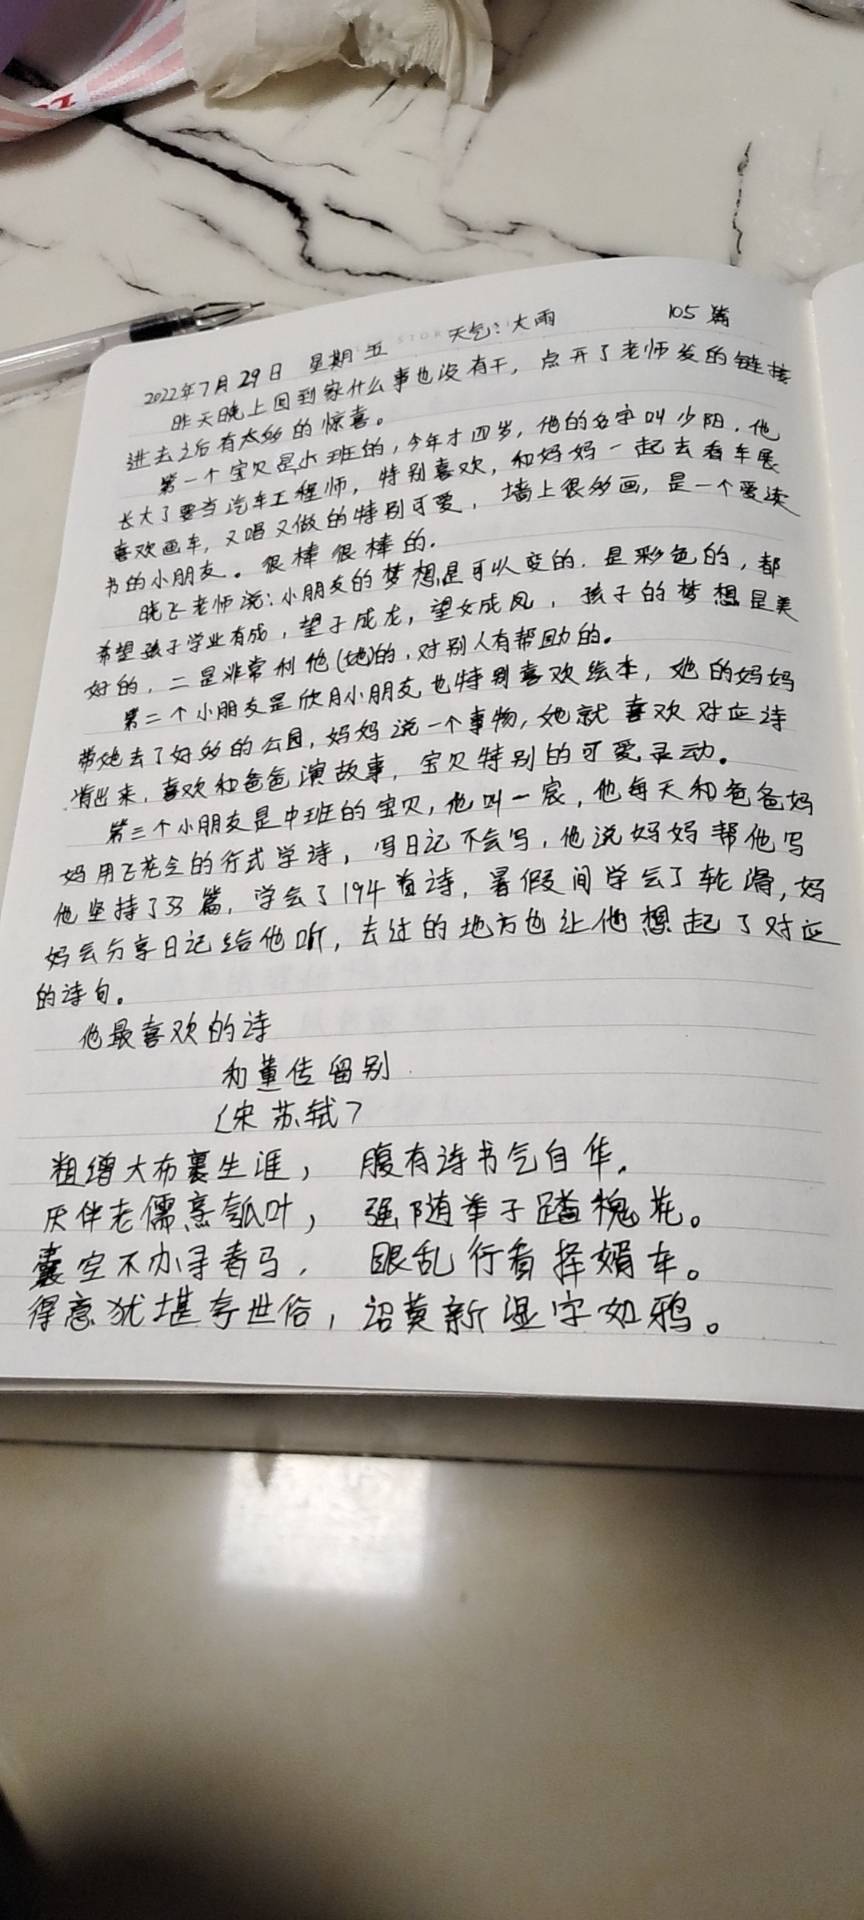 2022年7月29日 星期五 天气:大雨 105篇
昨天晚上回到家什么事也没有干，点开了老师发的链接
进去之后有太多的惊喜。
第一个宝贝是小班的，今年才四岁，他的名字叫少阳，他
长大了要当汽车工程师，特别喜欢，和妈妈一起去看车展
喜欢画车，又唱又做的特别可爱，墙上很多画，是一个爱读
书的小朋友。很棒很棒的.
晓飞老师说:小朋友的梦想是可以变的.是彩色的，都
希望孩子学业有成，望子成龙，望女成凤，孩子的梦想是美
好的，二是非常利他(她)的，对别人有帮助的。
第二个小朋友是欣月小朋友也特别喜欢绘本，她的妈妈
带她去了好多的公园，妈妈说一个事物，她就喜欢对应诗
出来，喜欢和爸爸演故事，宝贝特别的可爱灵动。
第三个小朋友是中班的宝贝，他叫一宸，他每天和爸爸妈
妈用飞花令的行式学诗，写日记不会写，他说妈妈帮他写
他坚持了33篇，学会了194首诗，暑假间学会了轮滑，妈
妈会分享日记给他听，去过的地方也让他想起了对应
的诗句。
他最喜欢的诗
和董传留别
〈宋 苏轼〉
粗缯大布裹生涯， 腹有诗书气自华.
厌伴老儒烹瓠叶， 强随举子踏槐花。
囊空不办寻春马. 眼乱行看择婿车。
得意犹堪夸世俗，诏黄新湿字如鸦。